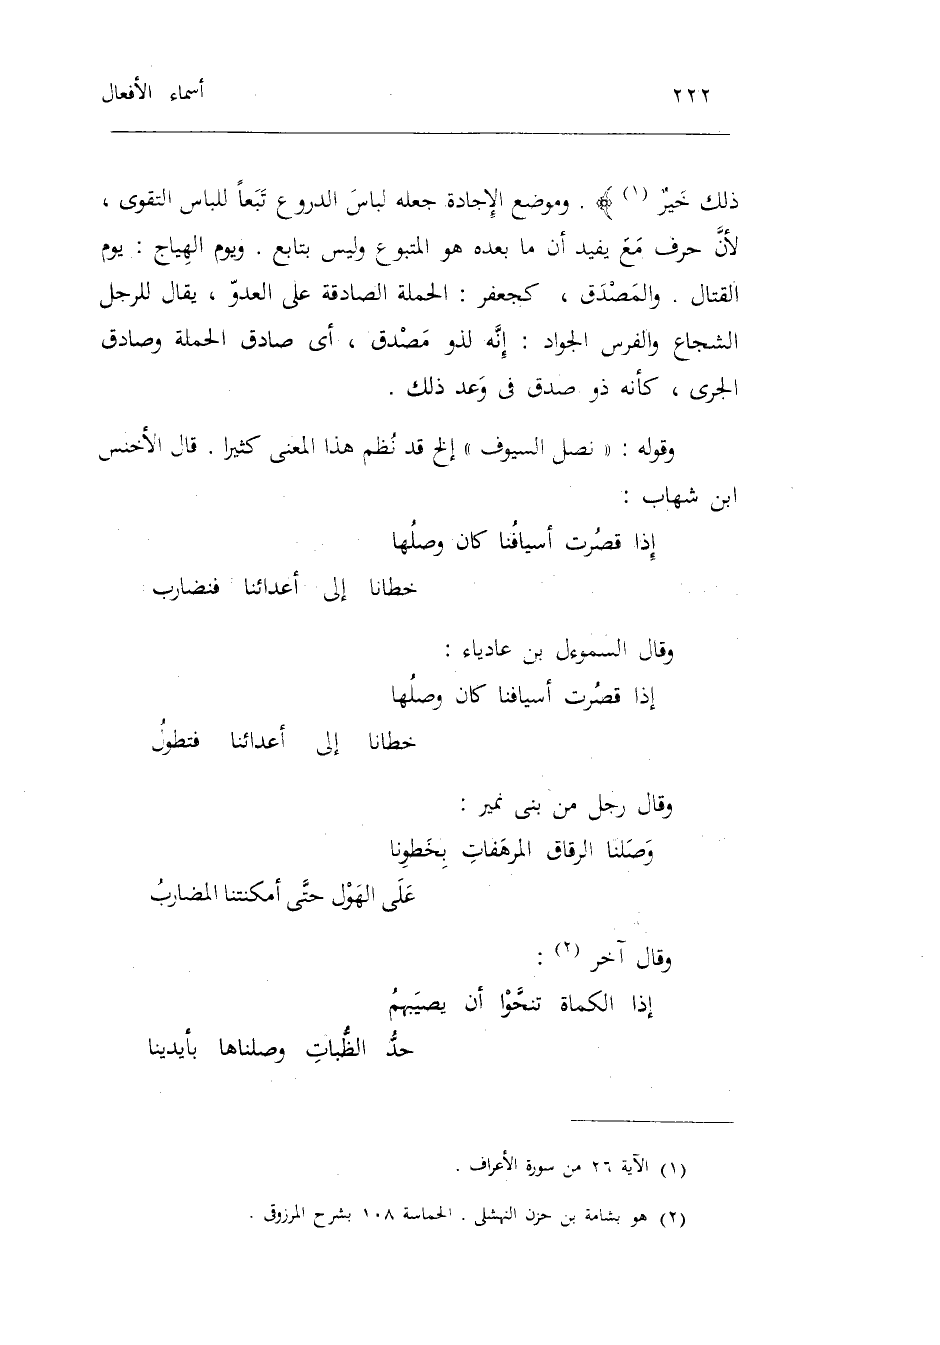 ٢٢٢ أسماء الأفعال
ذلك خَيرٌ (١) ﴾ . وموضع الإِجادة جعله لباسَ الدروع تَبَعاً للباس التقوى ،
لأنَّ حرف مَعَ يفيد أن ما بعده هو المتبوع وليس بتابع . ويوم الهِياج : يوم
القتال . والمَصْدَق ، كجعفر : الحملة الصادقة على العدوّ ، يقال للرجل
الشجاع والفرس الجواد : إنَّه لذو مَصْدق ، أى صادق الحملة وصادق
الجرى ، كأنه ذو صدق فى وَعد ذلك .
وقوله : « نصل السيوف » إلخ قد نُظم هذا المعنى كثيرا . قال الأخنس
ابن شهاب :
إِذا قصُرت أسيافُنا كان وصلُها
خطانا إلى أعدائنا فنضارب
وقال السموءل بن عادياء :
إذا قصُرت أسيافنا كان وصلُها
خطانا إلى أعدائنا فتطولُ
وقال رجل من بنى نمير :
وَصَلنا الرقاق المرهَفاتِ بِخَطوِنا
عَلَى الهَوْل حتَّى أمكنتنا المضاربُ
وقال آخر (٢) :
إذا الكماة تنحَّوْا أن يصيَبهمُ
حدُّ الظُّباتِ وصلناها بأيدينا
(١) الآية ٢٦ من سورة الأعراف .
(٢) هو بشامة بن حزن النهشلى . الحماسة ١٠٨ بشرح المرزوقى .